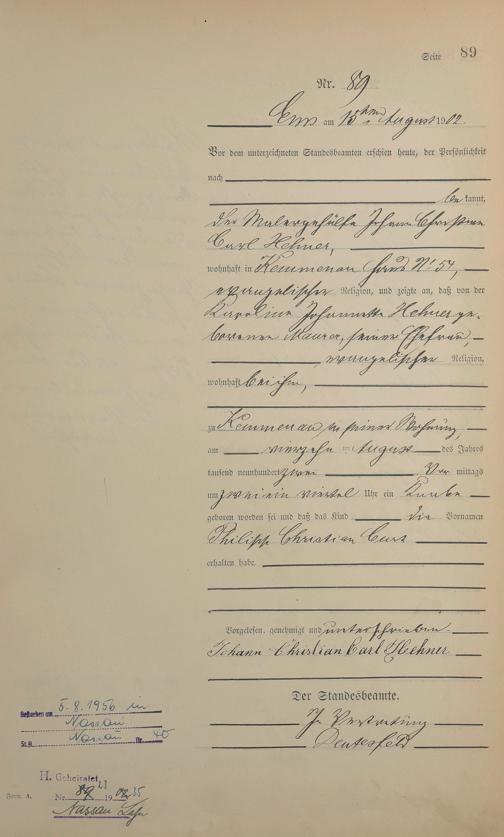 Seite 89
Nr. 89
Ems am 15ten August 1902.
Vor dem unterzeichneten Standesbeamten erschien heute, der Persönlichkeit
nach
bekannt,
der Malergehülfe Johann Christian
Carl Hehner,
wohnhaft in Kemmenau Haus No 54,
evangelischer Religion, und zeigte an, daß von der
Karoline Johannette Hehner ge-
borenen Maurer, seiner Ehefrau,
evangelischer Religion,
wohnhaft bei ihm,
zu Kemmenau in seiner Wohnung,
am vierzehn ten August des Jahres
tausend neunhundert zwei Vor mittags
um zwei ein viertel Uhr ein Knabe
geboren worden sei und daß das Kind die Vornamen
Philipp Christian Carl
erhalten habe.
Vorgelesen, genehmigt und unterschrieben
Johann Christian Carl Hehner
Der Standesbeamte.
In Vertretung
Gestorben am 5.8.1956 in
Nassau
St.A. Nassau Nr. 40
H. Geheiratet
Form. A.
Nassau Lahn